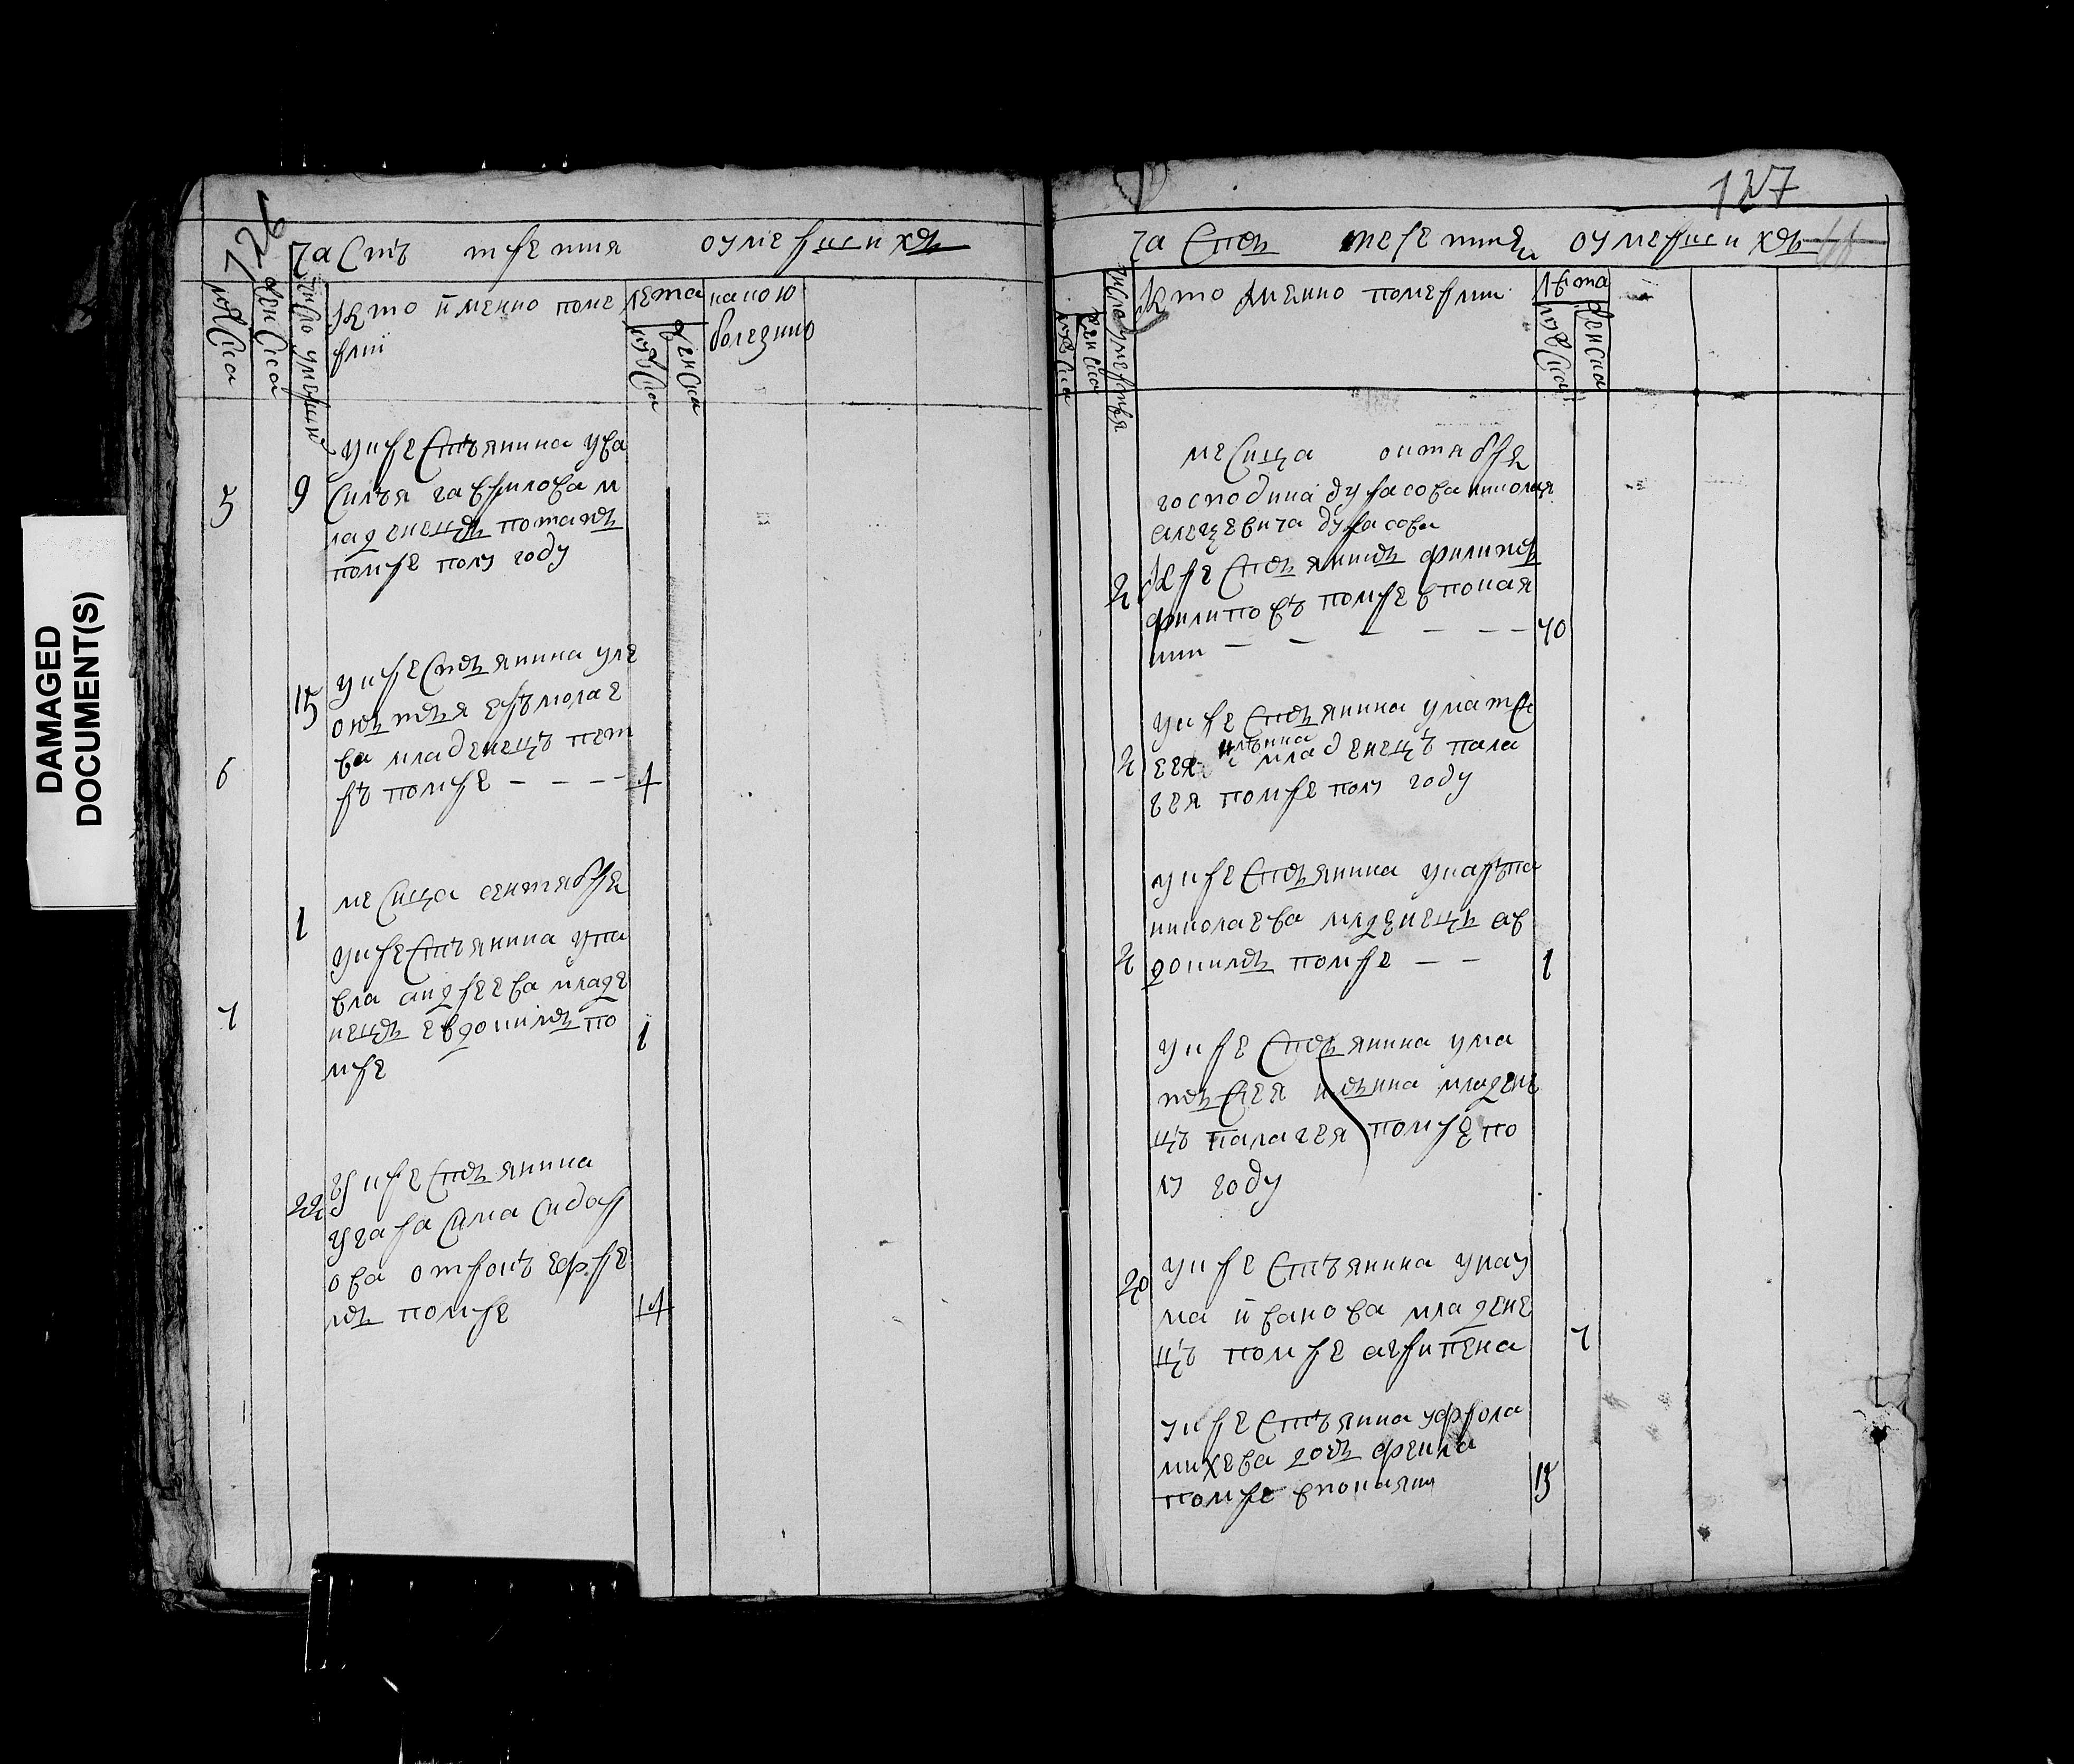 DAMAGED
DOCUMENT(S)
126
часть третия оумершихъ
мужска
женска
число умерши
кто именно поме
рли
лета
мужска
женска
какою
болезнию
5
9
у кре стьянина ува
силья гаврилова м
ладенецъ потапъ
помре полу году
6
15
у кре стьянина уле
оньтья ерьмолае
ва младенецъ пет
ръ помре
4
месица сентебря
7
1
у кре стьянина упа
вла андреева младе
нецъ евдокимъ по
мре
1
22
у кре стьянина
угарасима сидор
ова отрокъ ефре
мъ помре
14
127
часть третия оумершихъ
мужска
женска
кто именно померли
лета
мужска
женска
месица октебря
господина дурасова николая
алегзевича дурасова
2
кре стьянинъ филипъ
филиповъ помре впокая
нии
70
2
у кре стьянина уматф
еея ильина младенецъ пала
гея помре полу году
2
у кре стьянина укарьпа
николаева младенецъ ев
докимъ помре
1
у кре стьянина ума
тьфея ильина младене
цъ палагея помре по
лу году
20
у кре стьянина унау
ма иванова младене
цъ помре агрипена
7
у кре стьянина уфрола
михева дочь фекла
помре впокаянии
15